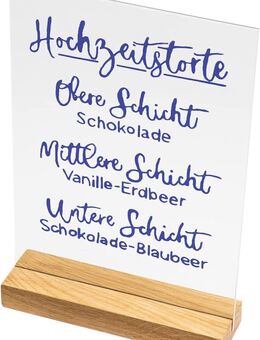 Hochzeitstorte
Obere Schicht
Schokolade
Mittlere Schicht
Vanille-Erdbeer
Untere Schicht
Schokolade-Blaubeer